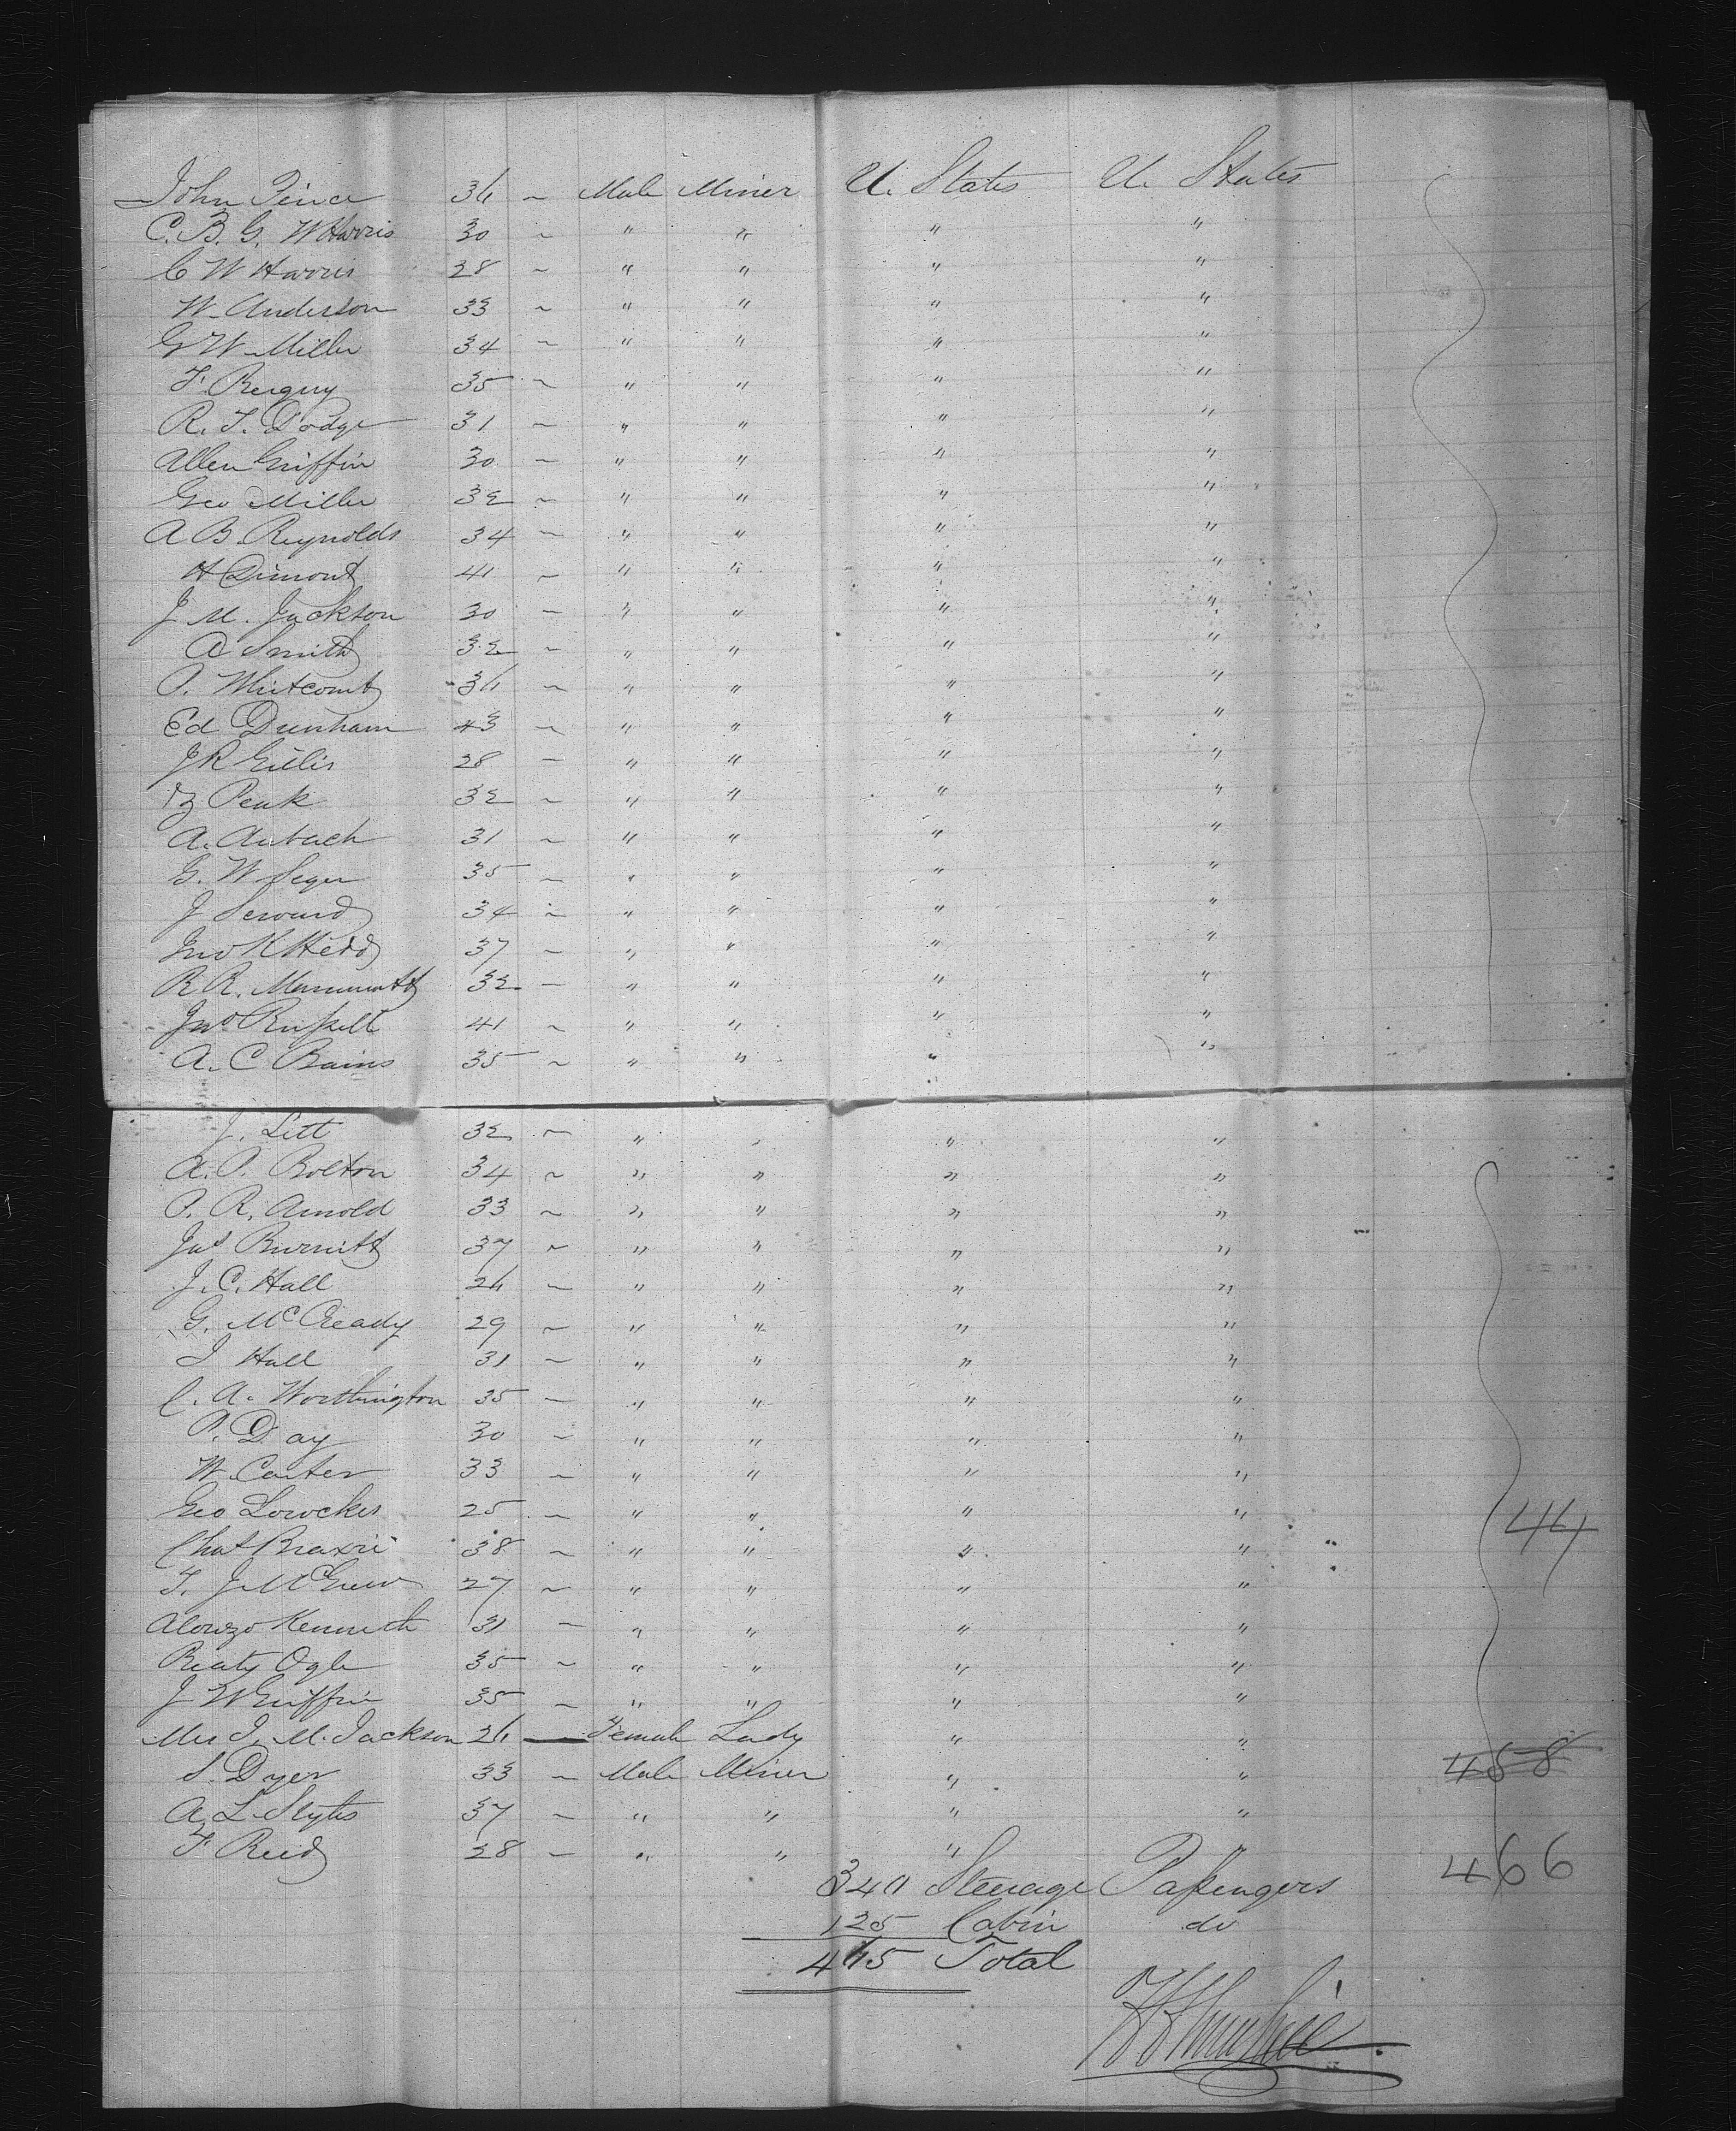 John Peirce 36 ~ Male Miner U. States U. States
C. B. G. W Harris 30 ~ " " " "
C W Harris 28 ~ " " " "
W. Anderson 33 ~ " " " "
G W Miller 34 ~ " " " "
F. 35 ~ " " " "
R. T. Dodge 31 ~ " " " "
Allen Griffin 30 ~ " " " "
Geo Miller 32 ~ " " " "
A B. Reynolds 34 ~ " " " "
H Dimont 41 ~ " " " "
J. M. Jackson 30 ~ " " " "
A Smith 32 ~ " " " "
P. Whitcomb 36 ~ " " " "
Ed Dunham 43 ~ " " " "
J R Gillis 28 ~ " " " "
Peak 32 ~ " " " "
A. Aubach 31 ~ " " " "
G. W Seger 35 ~ " " " "
J Seward 34 ~ " " " "
Jno K 37 ~ " " " "
R R. 32 ~ " " " "
Jno Russell 41 ~ " " " "
A. C Bains 35 ~ " " " "
J. Litt 32 ~ " " " "
A. P. Bolton 34 ~ " " " "
P. R. Arnold 33 ~ " " " "
Jas Burnitt 37 ~ " " " "
J. C. Hall 26 ~ " " " "
G. McCready 29 ~ " " " "
J Hall 31 ~ " " " "
C. A. Worthington 35 ~ " " " "
P. Day 30 ~ " " " "
W. Carter 33 ~ " " " "
Geo 25 ~ " " " " 44
Chas 38 ~ " " " "
T. J McGrew 27 ~ " " " "
Alonzo Kenneth 31 ~ " " " "
Beaty Ogle 35 ~ " " " "
J W Griffin 35 ~ " " " "
Mrs J. M. Jackson 26 — Female Lady " "
S. Dyer 33 ~ Male Miner " " 458
A. L. Slytes 37 ~ " " " "
F Reid 28 ~ " " " "
340 Steerage Passengers 466
125 Cabin do
465 Total